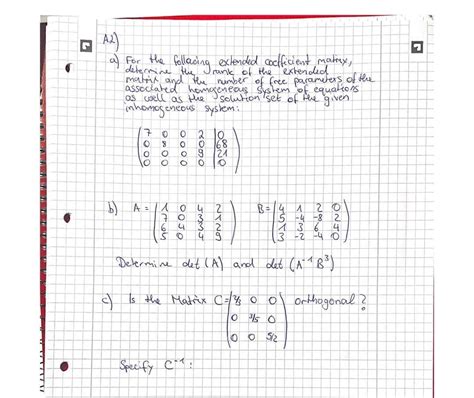 A2)
a) For the following extended coefficient matrix,
determine the rank of the extended
matrix and the number of free parameters of the
associated homogeneous system of equations
as well as the solution set of the given
inhomogeneous system:
( 7 0 0 2 | 0 )
( 0 8 0 0 | 68 )
( 0 0 0 9 | 21 )
( 0 0 0 0 | 0 )
b) A = ( 1 0 4 2 ) B = ( 4 1 2 0 )
( 7 0 3 1 ) ( 5 -4 -8 2 )
( 6 4 3 2 ) ( 1 3 6 4 )
( 5 0 4 9 ) ( 3 -2 -4 0 )
Determine det (A) and det (A⁻¹ B³)
c) Is the Matrix C = ( 2/3 0 0 ) orthogonal?
( 0 3/5 0 )
( 0 0 5/2 )
Specify C⁻¹: